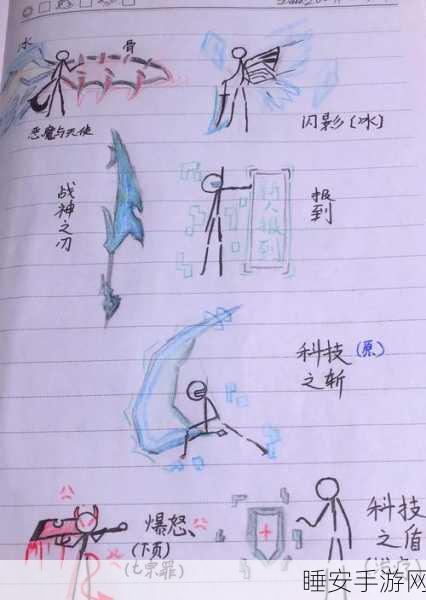 冰
骨
恶魔与天使
闪影(冰)
战神之刃
新人报到
报到
科技(原)
之斩
爆怒
(下页)
(七宗罪)
科技
之盾
(治疗)
睡安手游网